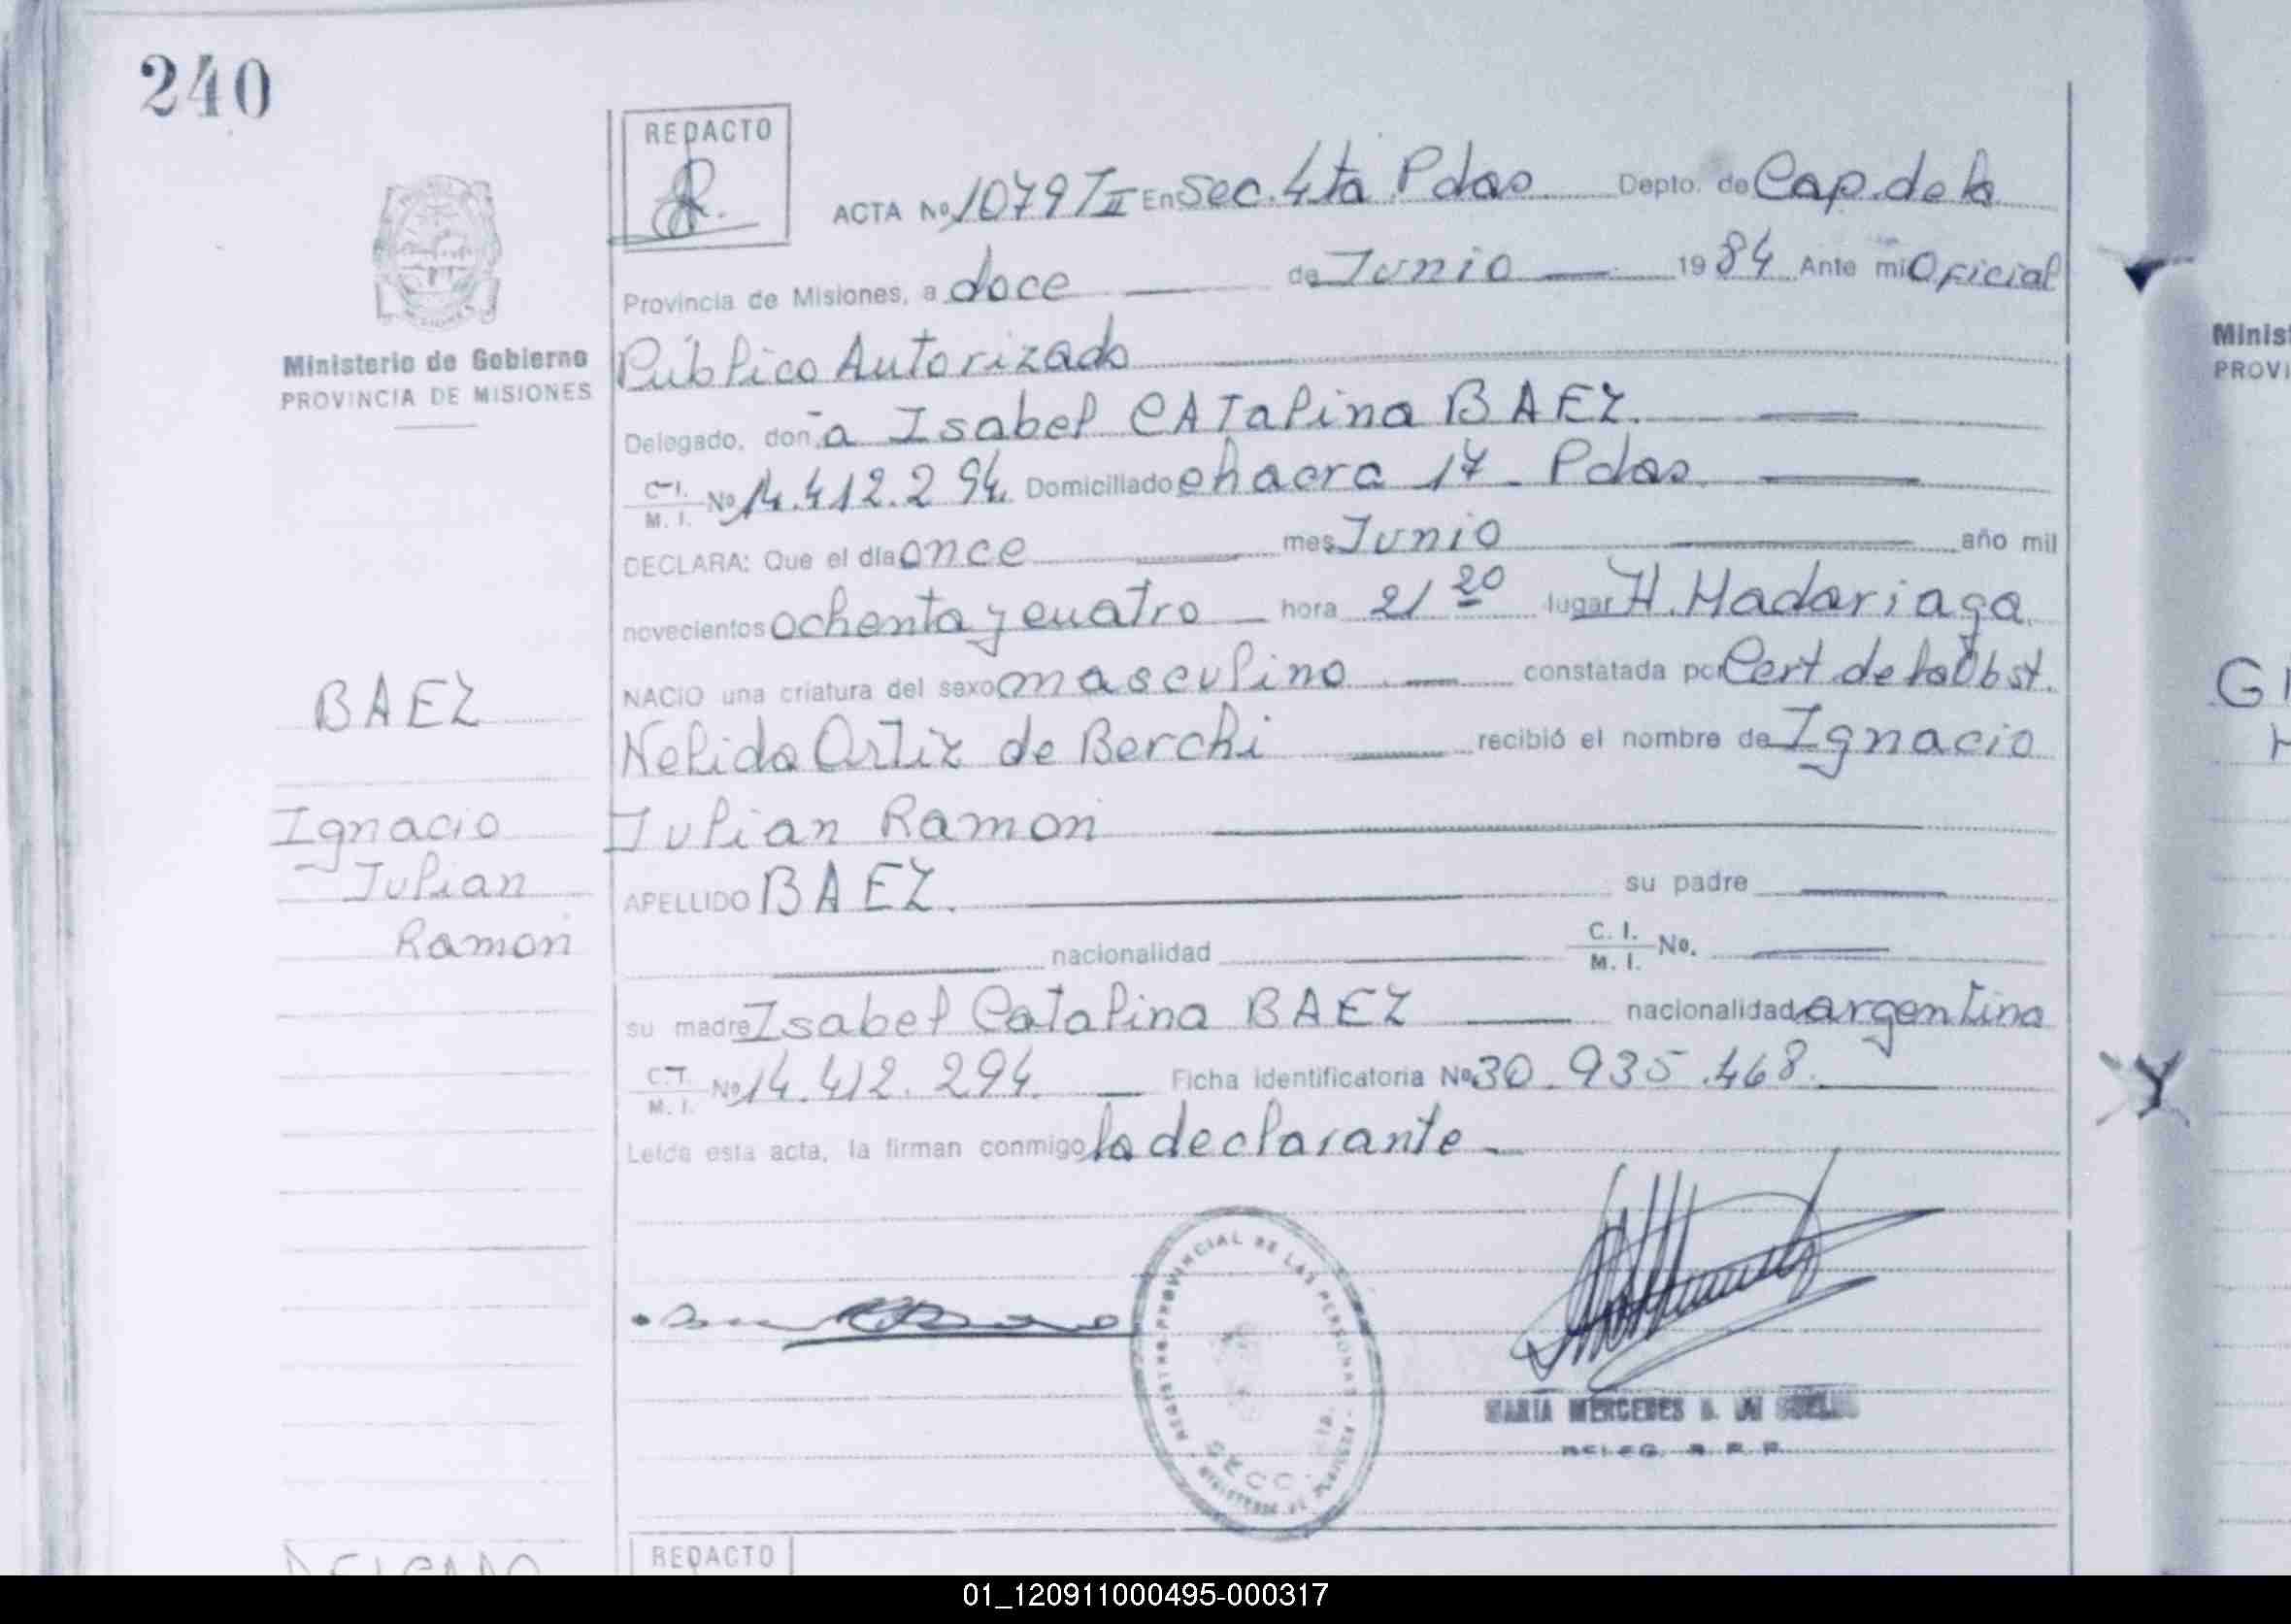 240
REDACTO
ACTA Nº 1079 T II En Sec. 4ta Pdas Depto. de Cap. de la
Provincia de Misiones, a doce de Junio 1984 Ante mi Oficial
Público Autorizado
Delegado, doña Isabel CATalina BAEZ.
Ministerio de Gobierno
PROVINCIA DE MISIONES
C.I. M. I. Nº 14.412.294. Domiciliado chacra 17 - Pdas.
DECLARA: Que el día once mes Junio año mil
novecientos ochenta y cuatro hora 21 20 lugar H. Madariaga.
NACIO una criatura del sexo masculino constatada por Cert. de la Obst.
Nelida Ortiz de Berchi recibió el nombre de Ignacio
Julian Ramon
APELLIDO BAEZ. su padre
nacionalidad C. I. M. I. No.
su madre Isabel Catalina BAEZ nacionalidad argentina
C.I. M. I. Nº 14.412.294. Ficha identificatoria Nº 30.935.468.
Leída esta acta, la firman conmigo la declarante
BAEZ
Ignacio
Julian
Ramon
REGISTRO PROVINCIAL DE LAS PERSONAS
SECC.
MARIA MERCEDES
DELEG. R. P. P.
REDACTO
DELGADO
Minis
PROVI
G
01_120911000495-000317